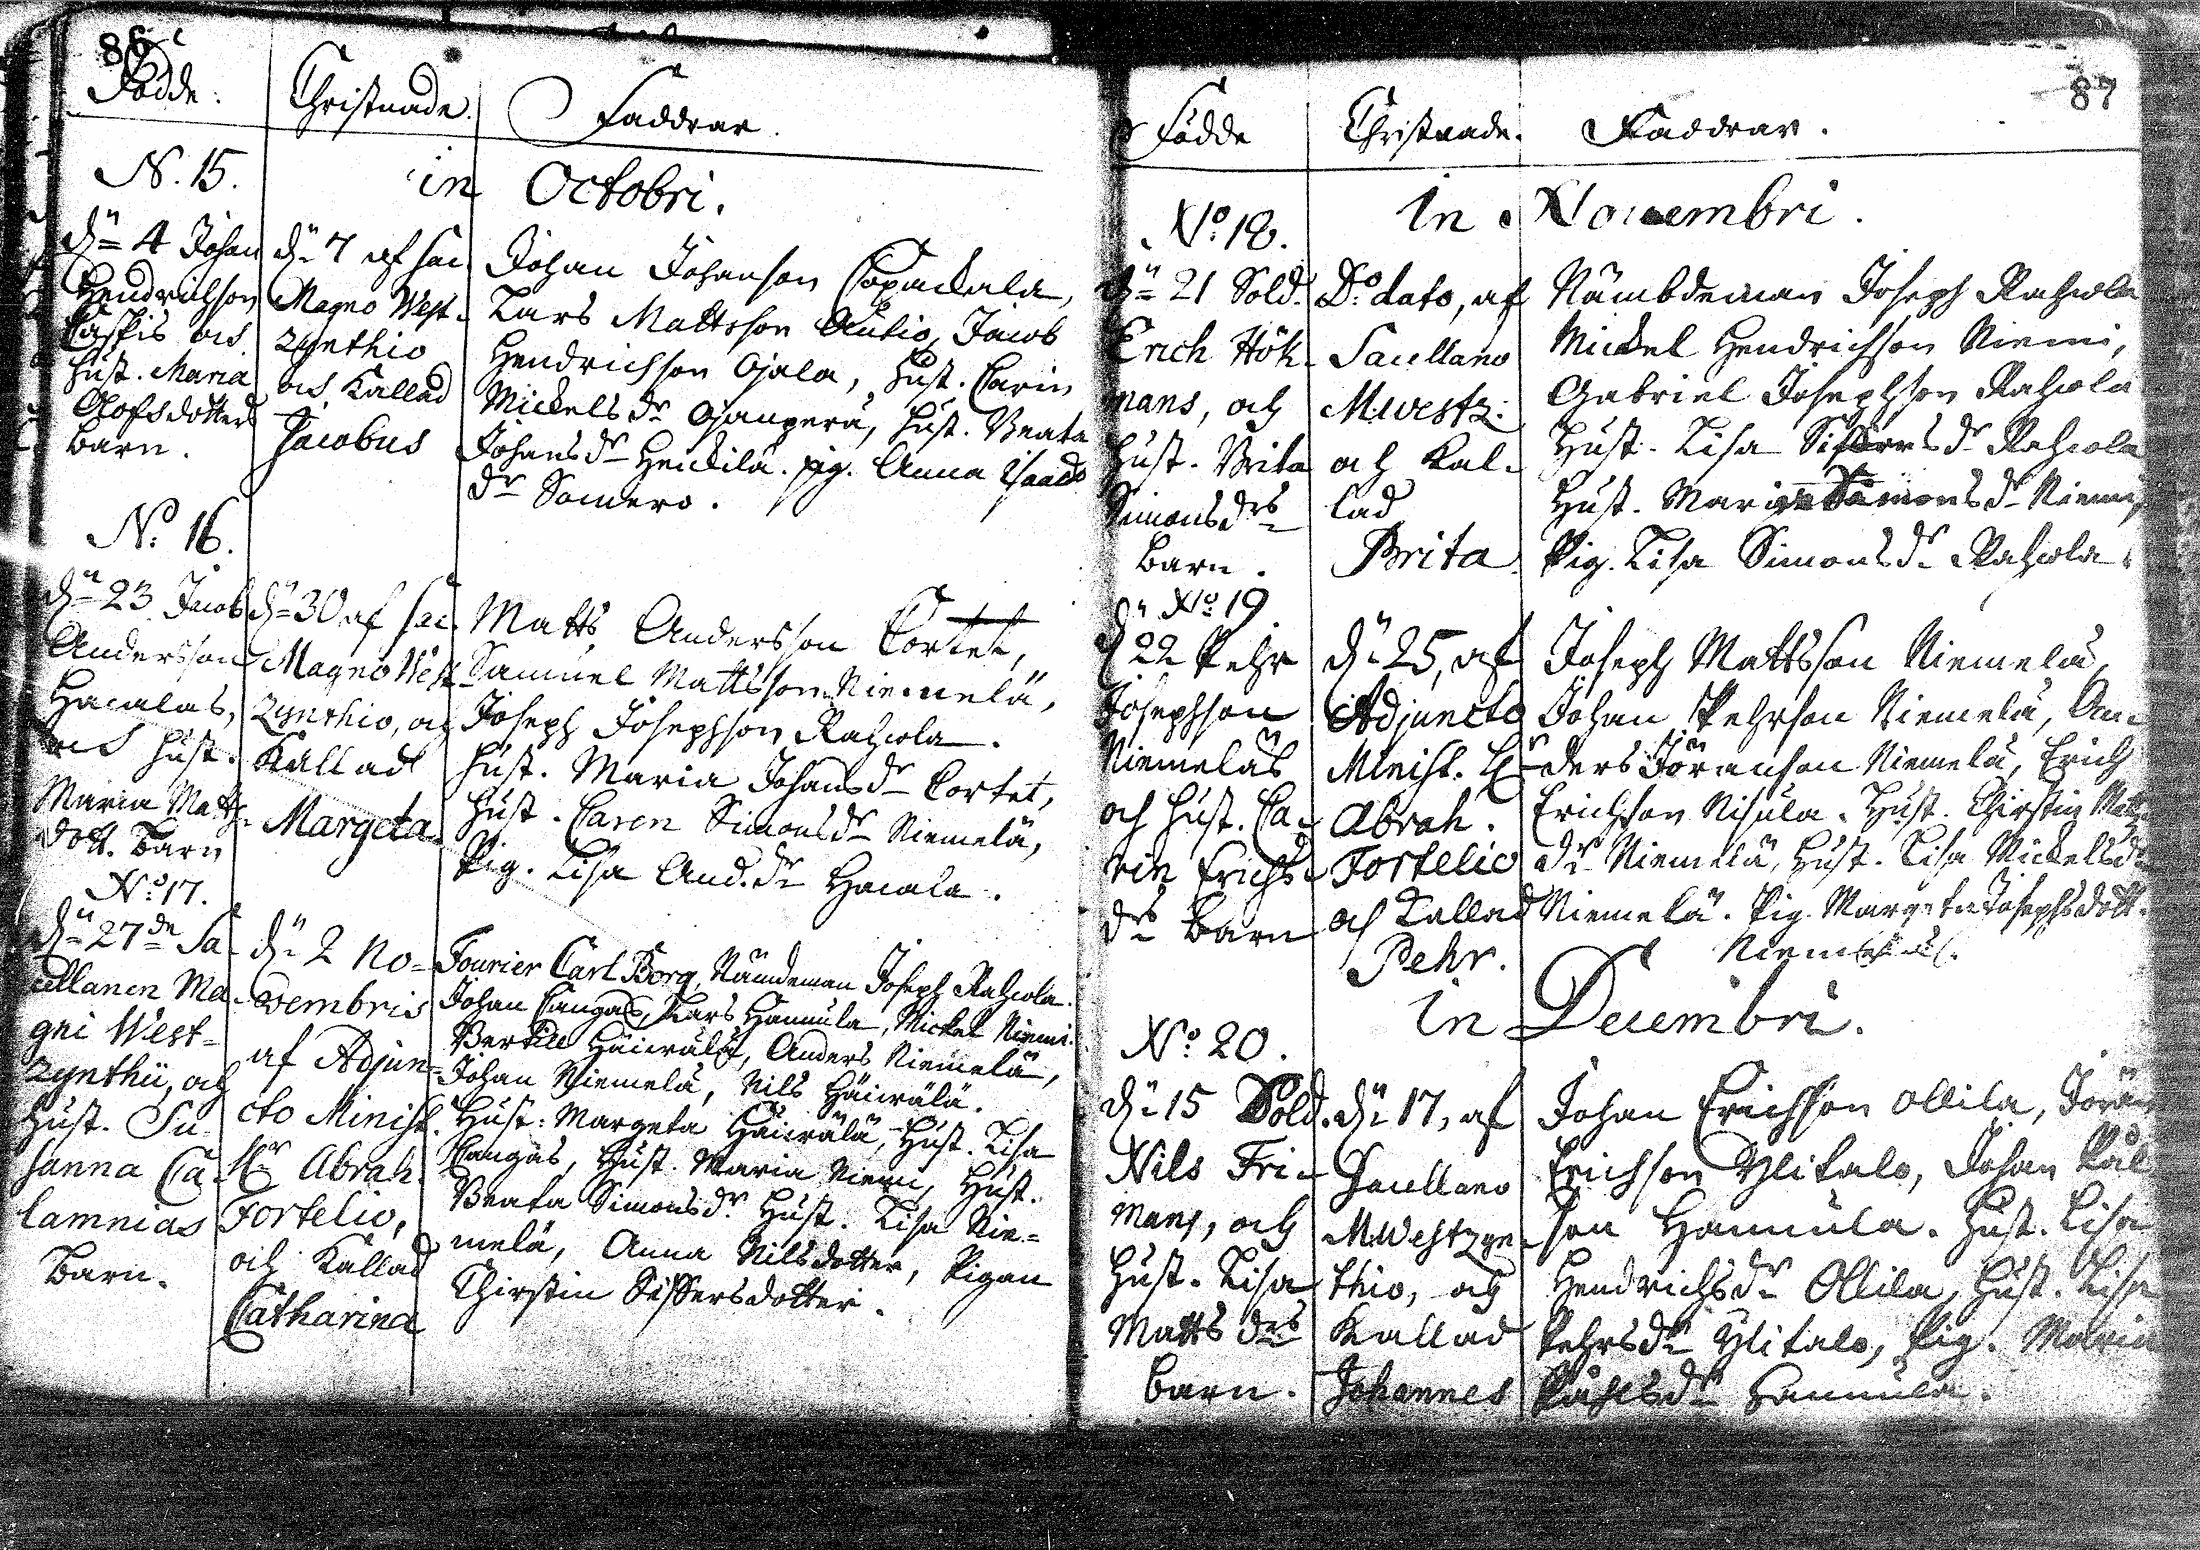 86
Födde.
Christnade.
Faddrar.
N. 15.
in Octobri.
dn 4 Johan
Hendrichson
Caskis och
hust. Maria
Olofsdotters
barn.
dn 7 af sac.
Magno West-
zynthio
och Kallad
Jacobus
Johan Johanson
Lars Mattsson Antio, Jacob
Hendrichson Ojala, Hust. Carin
Mickelsdr Ojanperä, hust. Beata
Johansdr Heickilä. pig. Anna Isaacs
dr Somero.
No. 16.
dn 23 Jacob
Andersson
Hacalas,
och hust.
Maria Matts
dott. barn
dn 30 af sac.
Magno West
zynthio, och
Kallad
Margeta.
Matts Andersson Cortet,
Samuel Mattsson Niemelä,
Joseph Josephson Rahiola.
hust. Maria Johansdr Cortet,
hust. Caren Simonsdr Niemelä,
Pig. Lisa And.dr Hacala.
No 17.
dn 27de Sa-
cellanen Ma-
gni West-
zynthii, och
hust. Su-
sanna Ca-
lamnias
barn.
dn 2 No-
vembris
af Adjun-
cto Minist.
Hr Abrah.
Fortelio,
och Kallad
Catharina
Fourier Carl Borg, Nämdeman Joseph Rahiola.
Johan Cangas, Lars Hannula, Mickel Niemi.
Bertill Häivälä, Anders Niemelä,
Johan Niemelä, Nils Häivälä.
Hust: Margeta Häivälä, Hust. Lisa
Cangas, Hust. Maria Niemi, Hust.
Beata Simonsdr Hust. Lisa Nie-
melä, Anna Nilsdotter, Pigan
Chirstin Siffersdotter.
87
Födde
Christnade.
Faddrar.
No. 18.
in Novembri.
dn 21 Sold.
Erich Hök-
mans, och
Hust. Brita
Simonsdrs
barn.
Do dato, af
Sacellano
M. Westz:
och Kal-
lad
Brita.
Nämbdeman Joseph Rahiola
Mickel Hendrichson Niemi,
Gabriel Josephson Rahiola
Hust. Lisa Siffersdr Rahiola
Hust. Maria Simonsdr Niemi,
Pig. Lisa Simonsdr Rahiola.
No 19
dn 22 Pehr
Josephson
Niemeläs
och hust. Ca-
rin Erichs
drs barn
dn 25, af
Adjuncto
Minist. Hr
Abrah.
Fortelio
och Kallad
Pehr.
Joseph Mattsson Niemelä,
Johan Pehrson Niemelä, An-
ders Jöranson Niemelä, Erich
Erichson Nisula. Hust. Chirstin Matts
dr Niemelä, Hust. Lisa Mickelsdr
Niemelä. Pig. Margeta Josephsdott.
Niemelä.
in Decembri.
No 20.
dn 15 Sold.
Nils Fri-
mans, och
Hust. Lisa
Matts drs
barn.
dn 17, af
Sacellano
M. Westzyn-
thio, och
Kallad
Johannes
Johan Erichson Ollila, Jöran
Erichson Ylitalo, Johan Pål
son Hannula. Hust. Lisa
Hendrichsdr Ollila, Hust. Lisa
Pehrsdr Ylitalo, Pig. Maria
Påhlsdr Hannula.